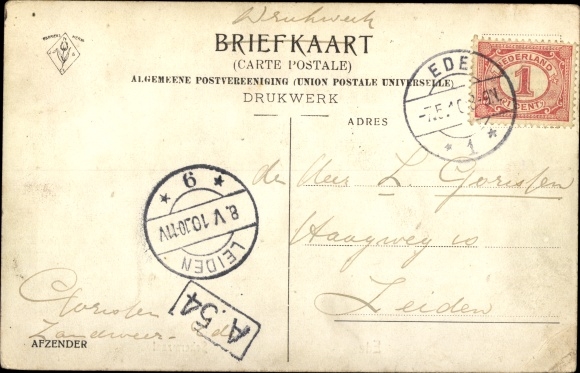 Drukwerk
BRIEFKAART
(CARTE POSTALE)
ALGEMEENE POSTVEREENIGING (UNION POSTALE UNIVERSELLE)
DRUKWERK
ADRES
EDE
1
NEDERLAND
1
CENT
den Heer L. Gorissen
Haagweg 10
Leiden
6
8.V 10.10-11V
LEIDEN
A.54
Gorissen
AFZENDER